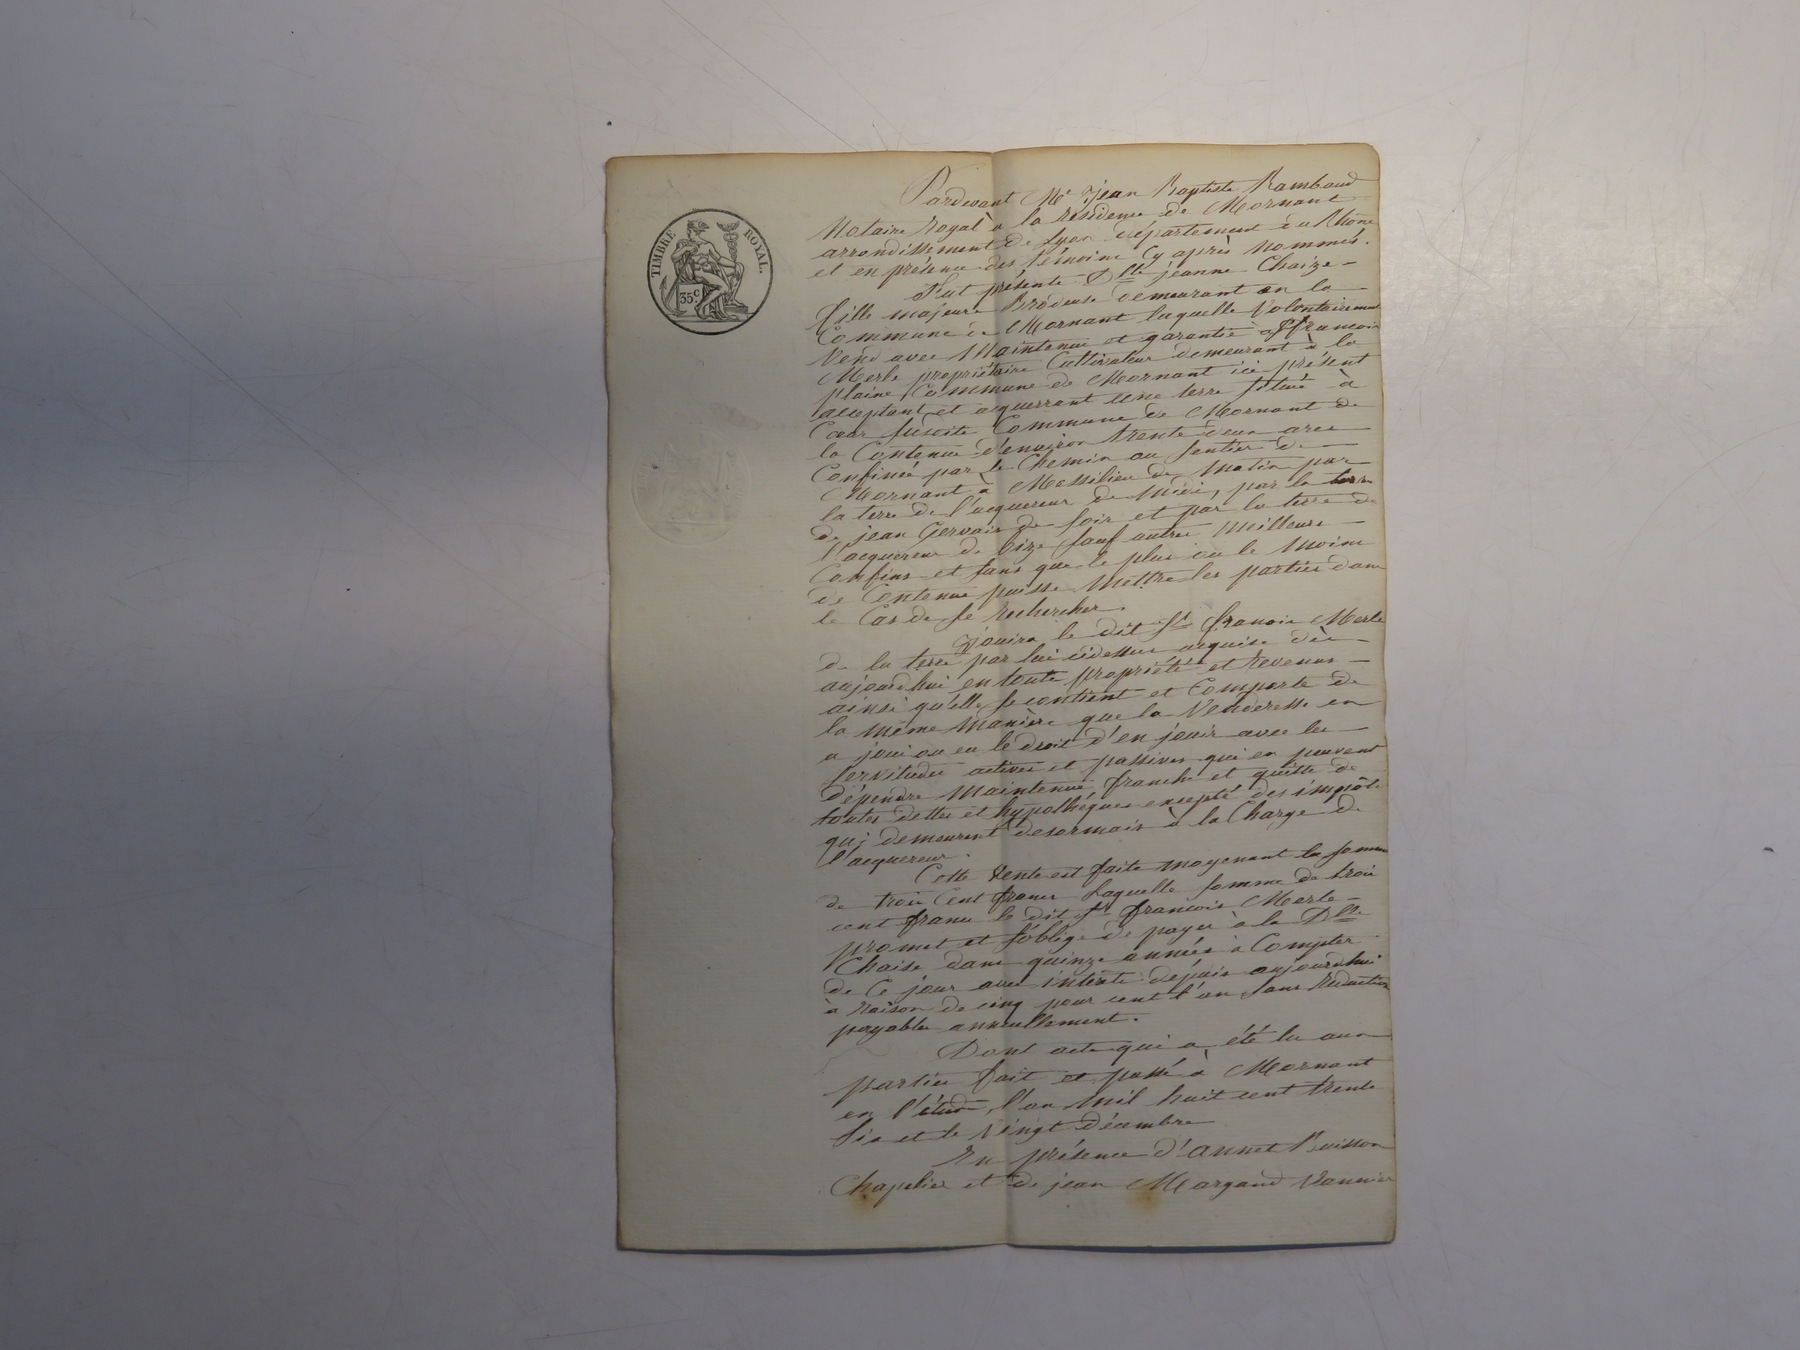 TIMBRE ROYAL.
35c
Pardevant Me jean Baptiste Rambaud
Notaire Royal à la résidence de Mornant
arrondissement de Lyon département du Rhône
et en présence des témoins cy après nommés.
Fut présente Dlle jeanne Chaize
fille majeure Brodeuse demeurant en la
Commune de Mornant laquelle Volontairement
Vend avec Maintenue et garantie à francois
Merle propriétaire Cultivateur demeurant à la
plaine Commune de Mornant ici présent
acceptant et acquerrant Une terre située à
Coeur susdite Commune de Mornant de
la Contenue d'environ trente deux ares
Confinée par le Chemin ou sentier de
Mornant à Messilieu de Matin par
la terre de l'acquereur de Midi, par la terre
de jean Gervais de soir et par la terre de
l'acquereur de bize sauf autres Meilleurs
Confins et sans que le plus ou le Moins
de Contenue puisse Mettre les parties dans
le Cas de se rechercher.
jouira le dit Sr francois Merle
de la terre par lui cidessus acquise dès
aujourdhui en toute propriété et revenus
ainsi qu'elle se contient et Comporte de
la même Manière que la Venderesse en
a joui ou eu le droit d'en jouir avec les
servitudes actives et passives qui en peuvent
dépendre Maintenue franche et quitte de
toutes dettes et hypothéques excepté des impôts
qui demeurent desormais à la Charge de
l'acquereur.
Cette Vente est faite moyenant la somme
de trois Cent francs Laquelle somme de trois
cent francs le dit Sr francois Merle
promet et s'oblige de payer à la Dlle
Chaise dans quinze années à Compter
de Ce jour avec intérêts depuis aujourdhui
à raison de cinq pour cent l'an sans réduction
payable annuellement.
Dont acte qui a été lu aux
parties fait et passé à Mornant
en l'étude, l'an Mil huit cent trente
Six et le Vingt décembre
En présence d'annet Buisson
Chapelier et de jean Margaud Vannier